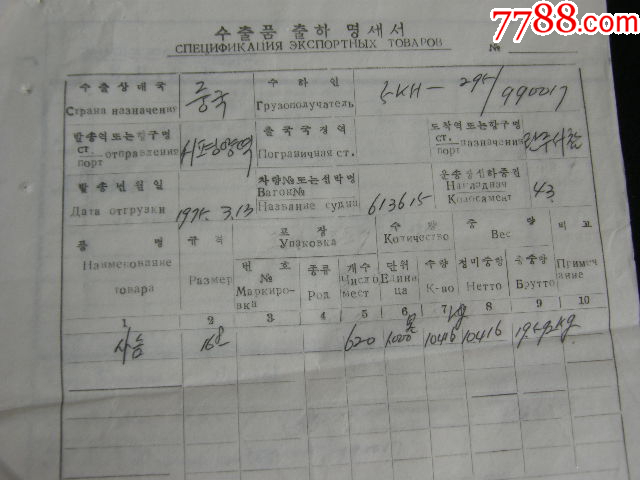 7788.com
수출품 출하 명세서
СПЕЦИФИКАЦИЯ ЭКСПОРТНЫХ ТОВАРОВ №
수출상대국 중국 수하인
Страна назначения Грузополучатель 990017
발송역또는항구명 출국국경역 도착역또는항구명
ст. отправления Пограничная ст. ст. назначения
порт порт
발송년월일 차량№또는선박명
Вагон№
Дата отгрузки 1975. 3.13 Название судна 613615 43
품명 규격 포장 수량 중량 비고
Упаковка Количество Вес
Наименование товара Размер
번호 종류 개수 단위 수량 정미중량 총중량
№ Маркировка Род Число мест Единица К-во Нетто Брутто Примечание
1 2 3 4 5 6 7 8 9 10
620 10416 10416